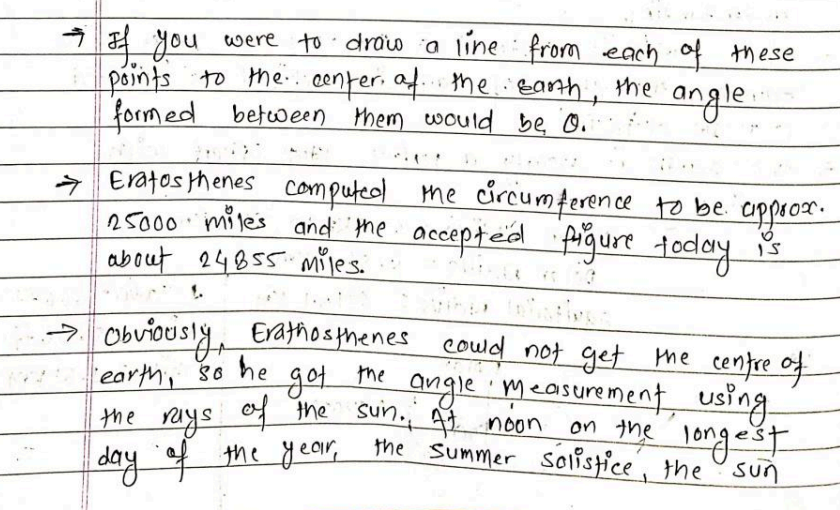 → If you were to draw a line from each of these
points to the center of the earth, the angle
formed between them would be θ.
→ Eratosthenes computed the circumference to be approx.
25000 miles and the accepted figure today is
about 24855 miles.
→ Obviously, Erathosthenes could not get the centre of
earth, so he got the angle measurement using
the rays of the sun. At noon on the longest
day of the year, the summer solistice, the sun